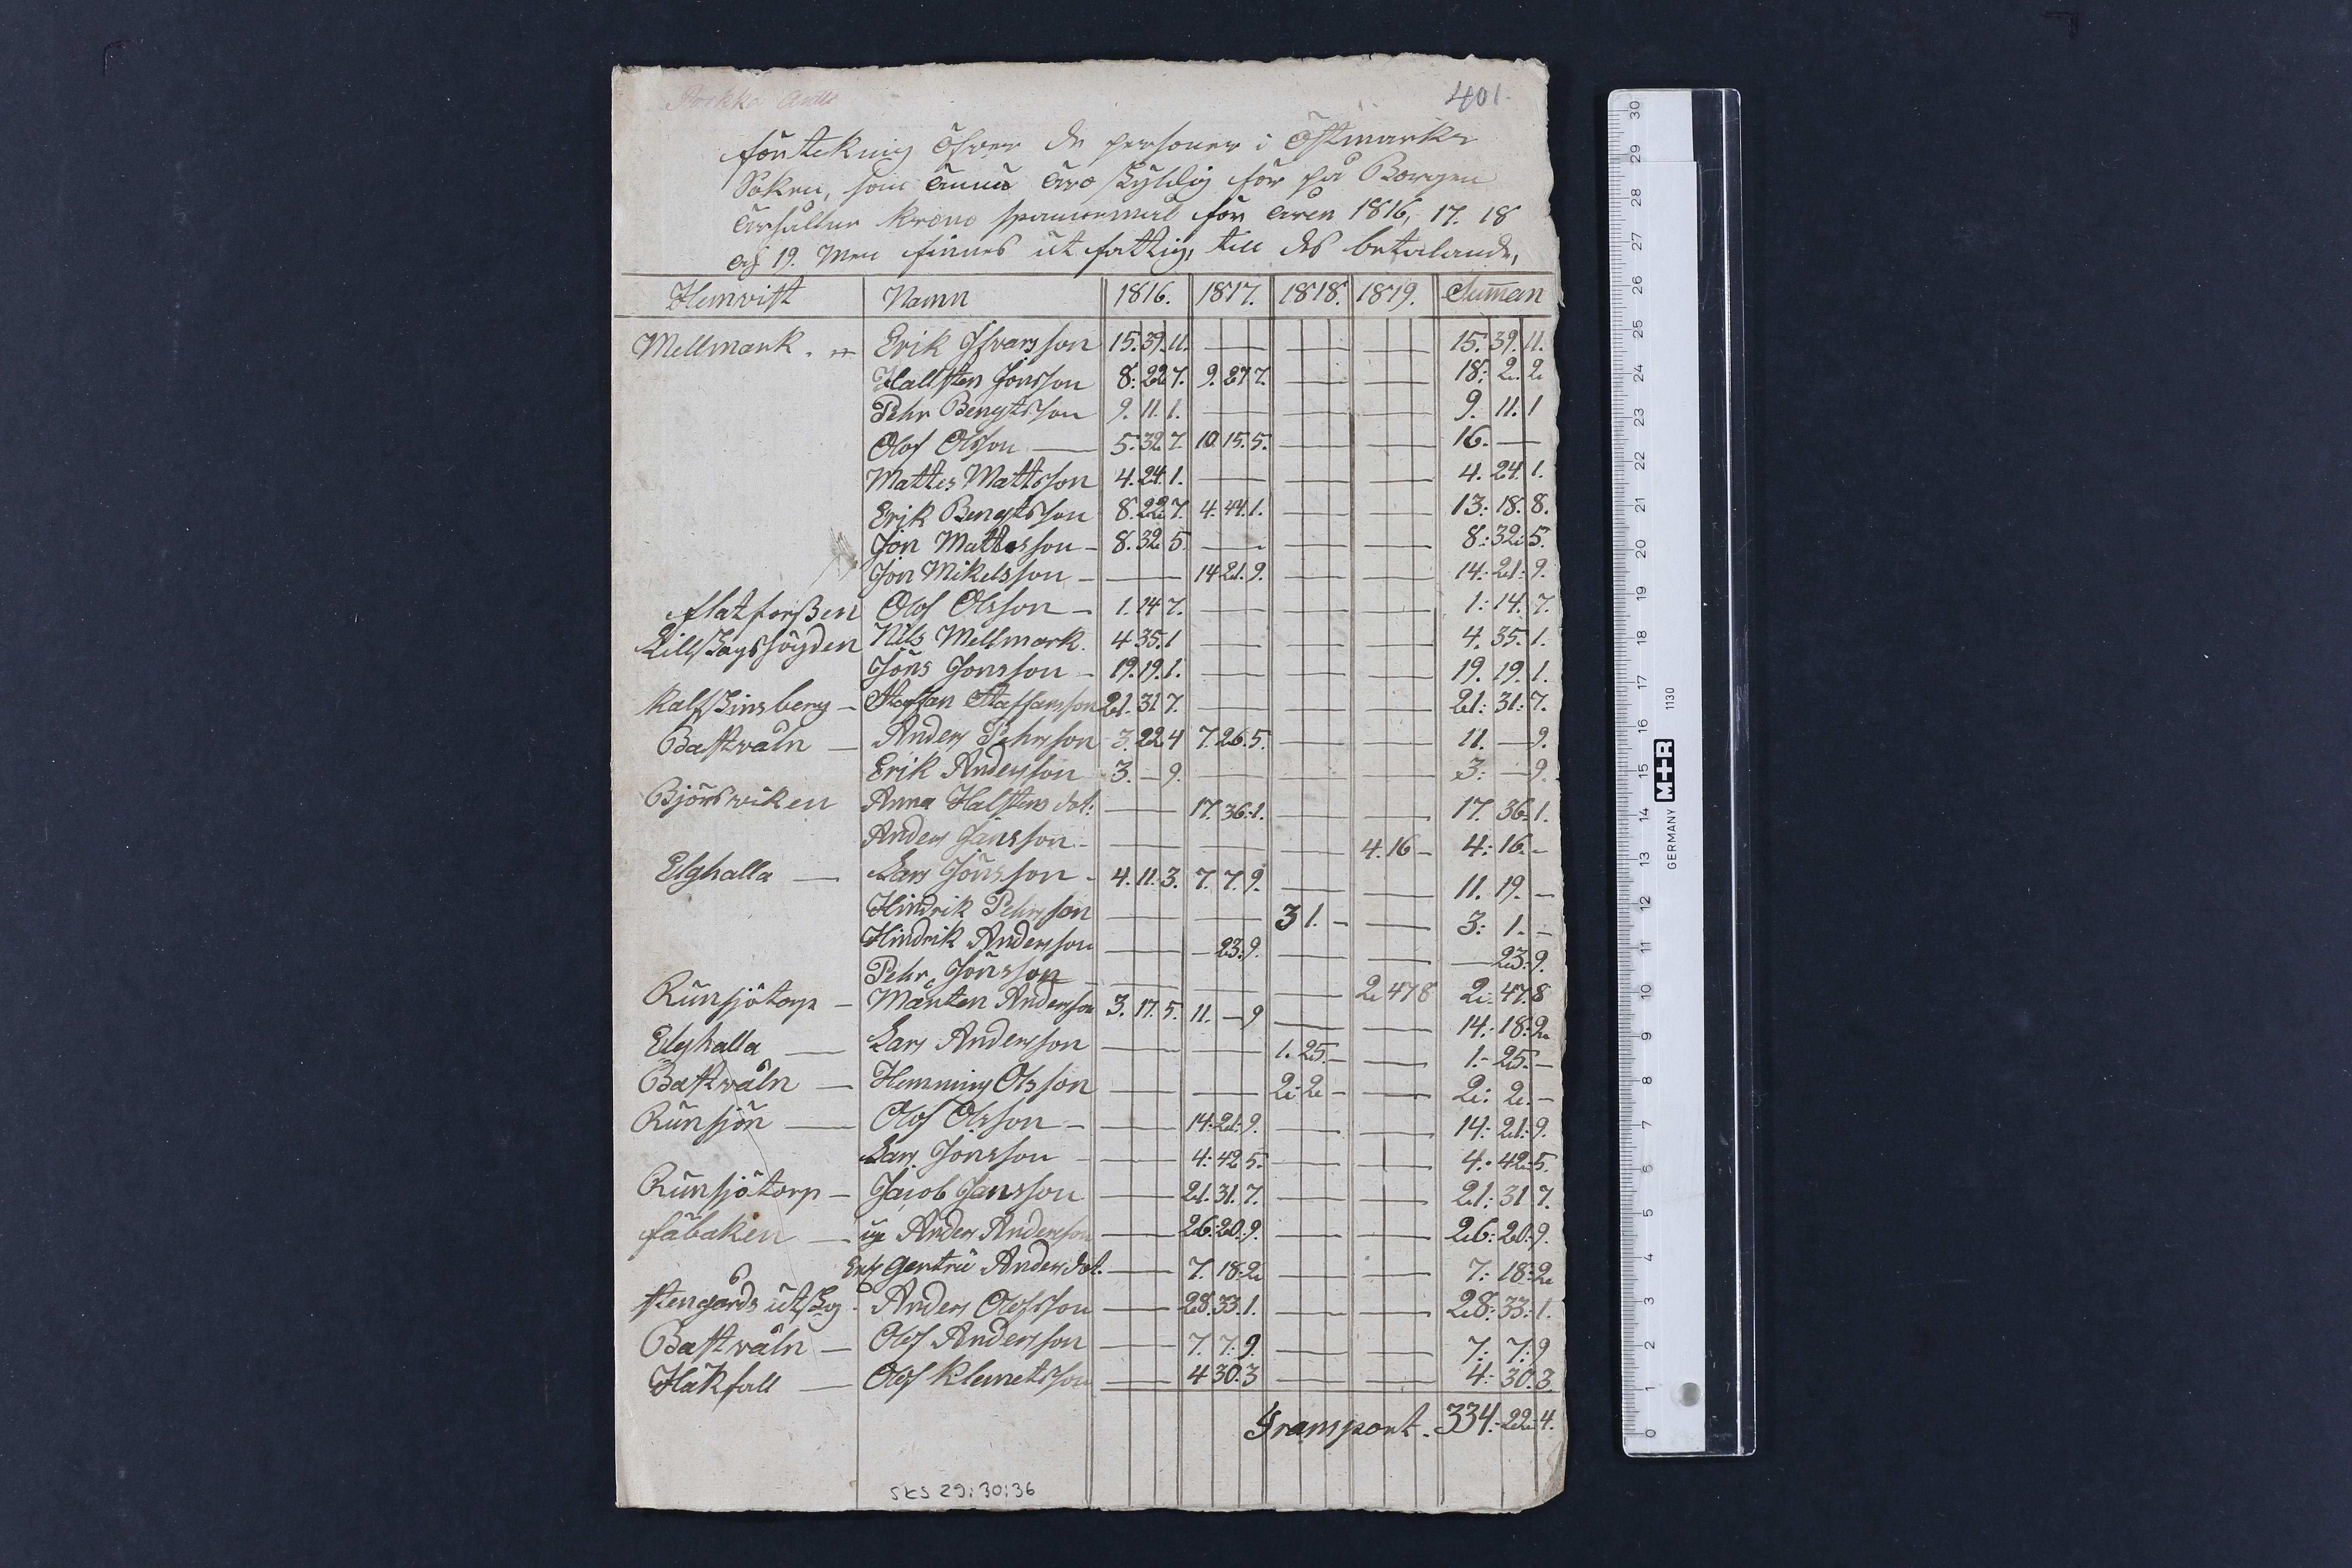 401.
förtekning öfver de personer i Östmarks
Soken, som ännu äro skyldig för på Borgen
ärhållne krono spannemål för åren 1816, 17. 18
och 19. Men finnes utfattig, till des betalande,
Hemvist Namn 1816. 1817. 1818. 1819. Suman
Mellmark Erik Ifvarsson 15. 39. 11. — — — 15. 39. 11.
Hallsten Jönsson 8: 22 7. 9. 27 7. — — 18: 2. 2
Pehr Bengtsson 9. 11. 1. — — — 9. 11. 1
Olof Olsson — 5. 32 7. 10 15. 5. — — 16. —
Mattes Mattsson 4. 24. 1. — — — 4. 24. 1.
Erik Bengtsson 8. 22. 7. 4. 44. 1. — — 13: 18. 8.
Jon Mattesson - 8. 32. 5 — — — 8: 32: 5.
Jon Mikelsson - — 14 21. 9. — — 14: 21: 9.
flatforssen Olof Olsson - 1. 14 7. — — — 1: 14. 7.
Lillskogshögden Nils Mellmark. 4 35. 1 — — — 4. 35. 1.
Jöns Jonsson - 19. 19. 1. — — — 19. 19. 1.
Kalfskinsberg - Staffan Staffansson 21. 31 7. — — — 21: 31: 7.
Bastvåln — Anders Pehrsson 3. 22 4 7. 26. 5. — — 11. — 9.
Erik Andersson 3. — 9. — — — 3: — 9.
Björsviken Anna Halstens dot: — 17. 36: 1. — — 17. 36. 1.
Anders Jansson - — — — 4. 16 - 4: 16. -
Elghalla — Lars Jönsson - 4. 11. 3. 7. 7. 9. — — 11. 19. —
Hindrik Pehrsson — — 3 1. - — 3: 1. -
Hindrik Andersson — - 23: 9. — — — 23: 9.
Pehr Jönsson — — — 2 47 8 2: 47. 8
Runsjötorp - Mårten Andersson 3. 17. 5. 11. — 9 — — 14: 18: 2
Elghalla — Lars Andersson — — 1. 25. - — 1: 25. -
Bastvåln — Hemming Olsson — — 2: 2 - — 2: 2. -
Runsjön — Olof Olsson - — 14: 21: 9. — — 14: 21: 9.
Lars Jonsson — 4: 42 5. — — 4: 42: 5.
Runsjötorp - Jacob Jansson — 21. 31. 7. — — 21: 31 7.
fäbaken — Anders Andersson — 26: 20. 9. — — 26: 20: 9.
Gertru Anders dot. — 7. 18: 2 — — 7: 18: 2
Stengårds utskog - Anders Olofsson — 28. 33. 1. — — 28: 33: 1.
Bastvåln — Olof Andersson — 7. 7. 9. — — 7: 7: 9
Häkfall — Olof Klemetsson — 4 30. 3 — — 4: 30: 3.
Transport. 334: 22: 4.
SKS 29:30:36
30 29 28 27 26 25 24 23 22 21 20 19 18 17 16 15 14 13 12 11 10 9 8 7 6 5 4 3 2 1 0
GERMANY M+R 1130